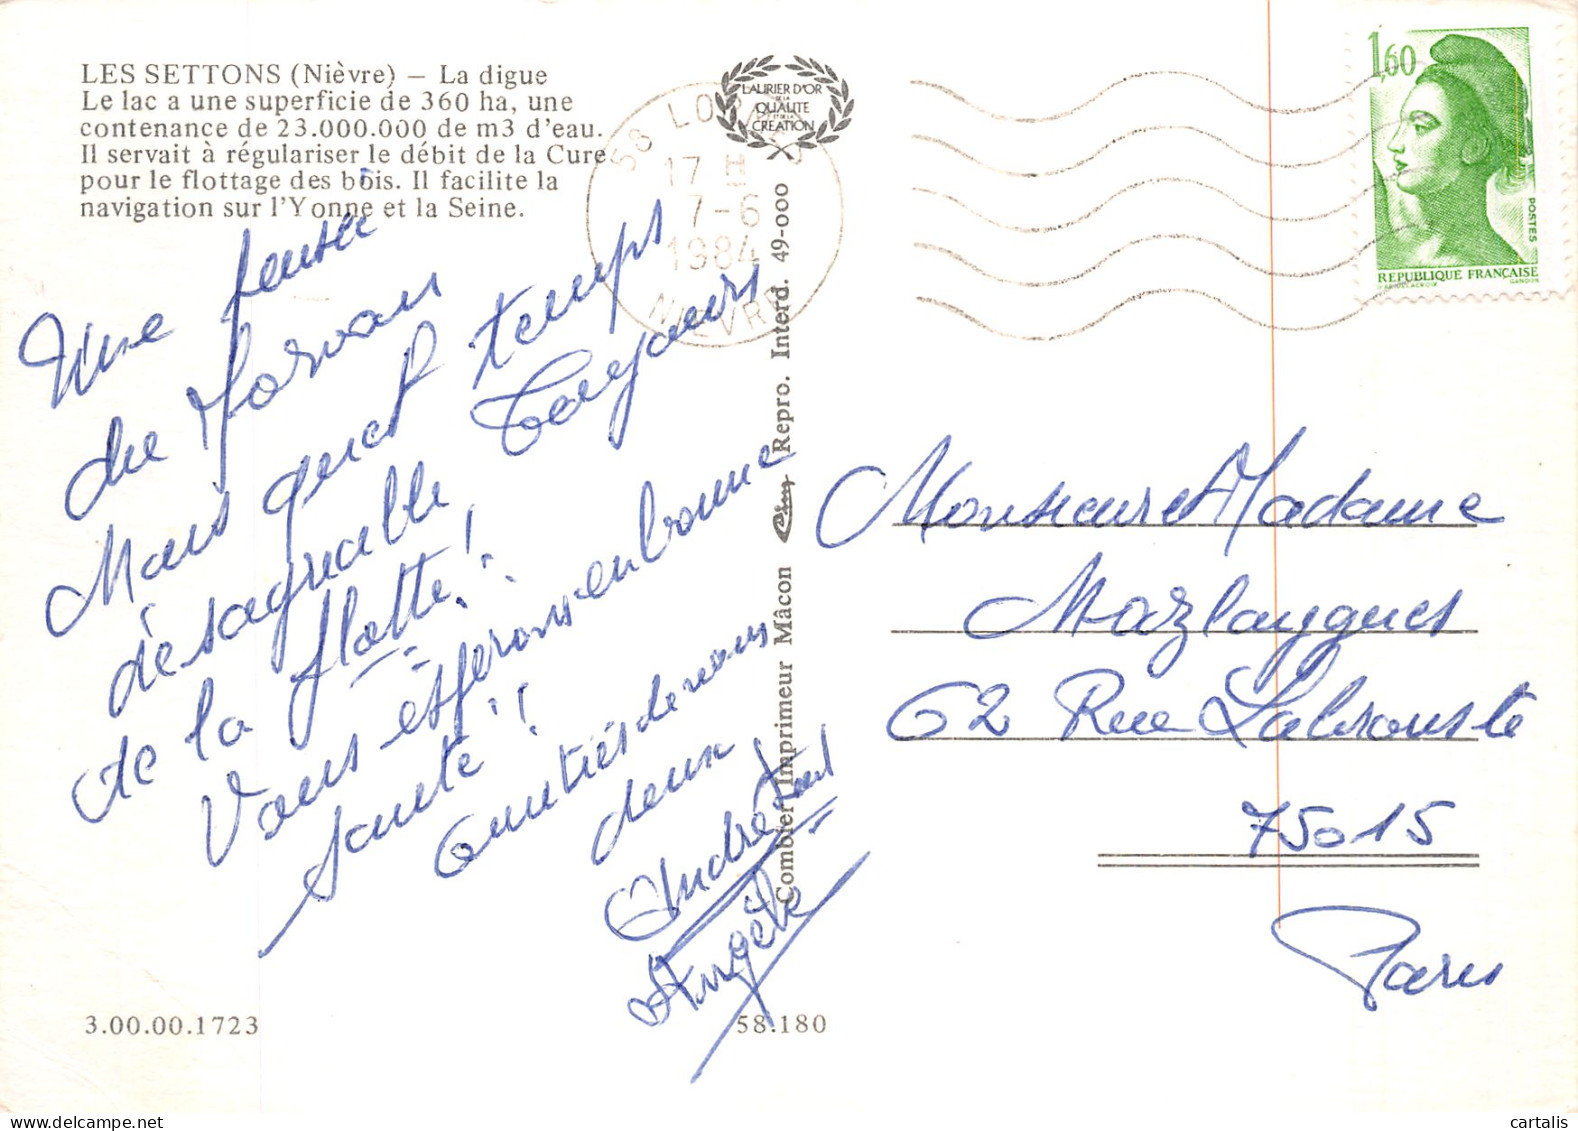 LES SETTONS (Nièvre) – La digue
Le lac a une superficie de 360 ha, une
contenance de 23.000.000 de m3 d'eau.
Il servait à régulariser le débit de la Cure
pour le flottage des bois. Il facilite la
navigation sur l'Yonne et la Seine.
Une pensée
du Morvan
Mais quel temps
désagréable toujours
de la flotte !
Vous espérons en bonne
santé !!
Amitiés de nous
deux
André
Angèle
3.00.00.1723
58.180
LAURIER D'OR
DE LA
QUALITE
ET DE LA
CREATION
58 LO
17 H
7-6
1984
NIEVRE
Combier Imprimeur Mâcon Repro. Interd. 49-000
1,60
POSTES
REPUBLIQUE FRANÇAISE
D'AP. DELACROIX GANDON
Monsieur et Madame
Mazlaygues
62 Rue Labrouste
75015
Paris
cartalis